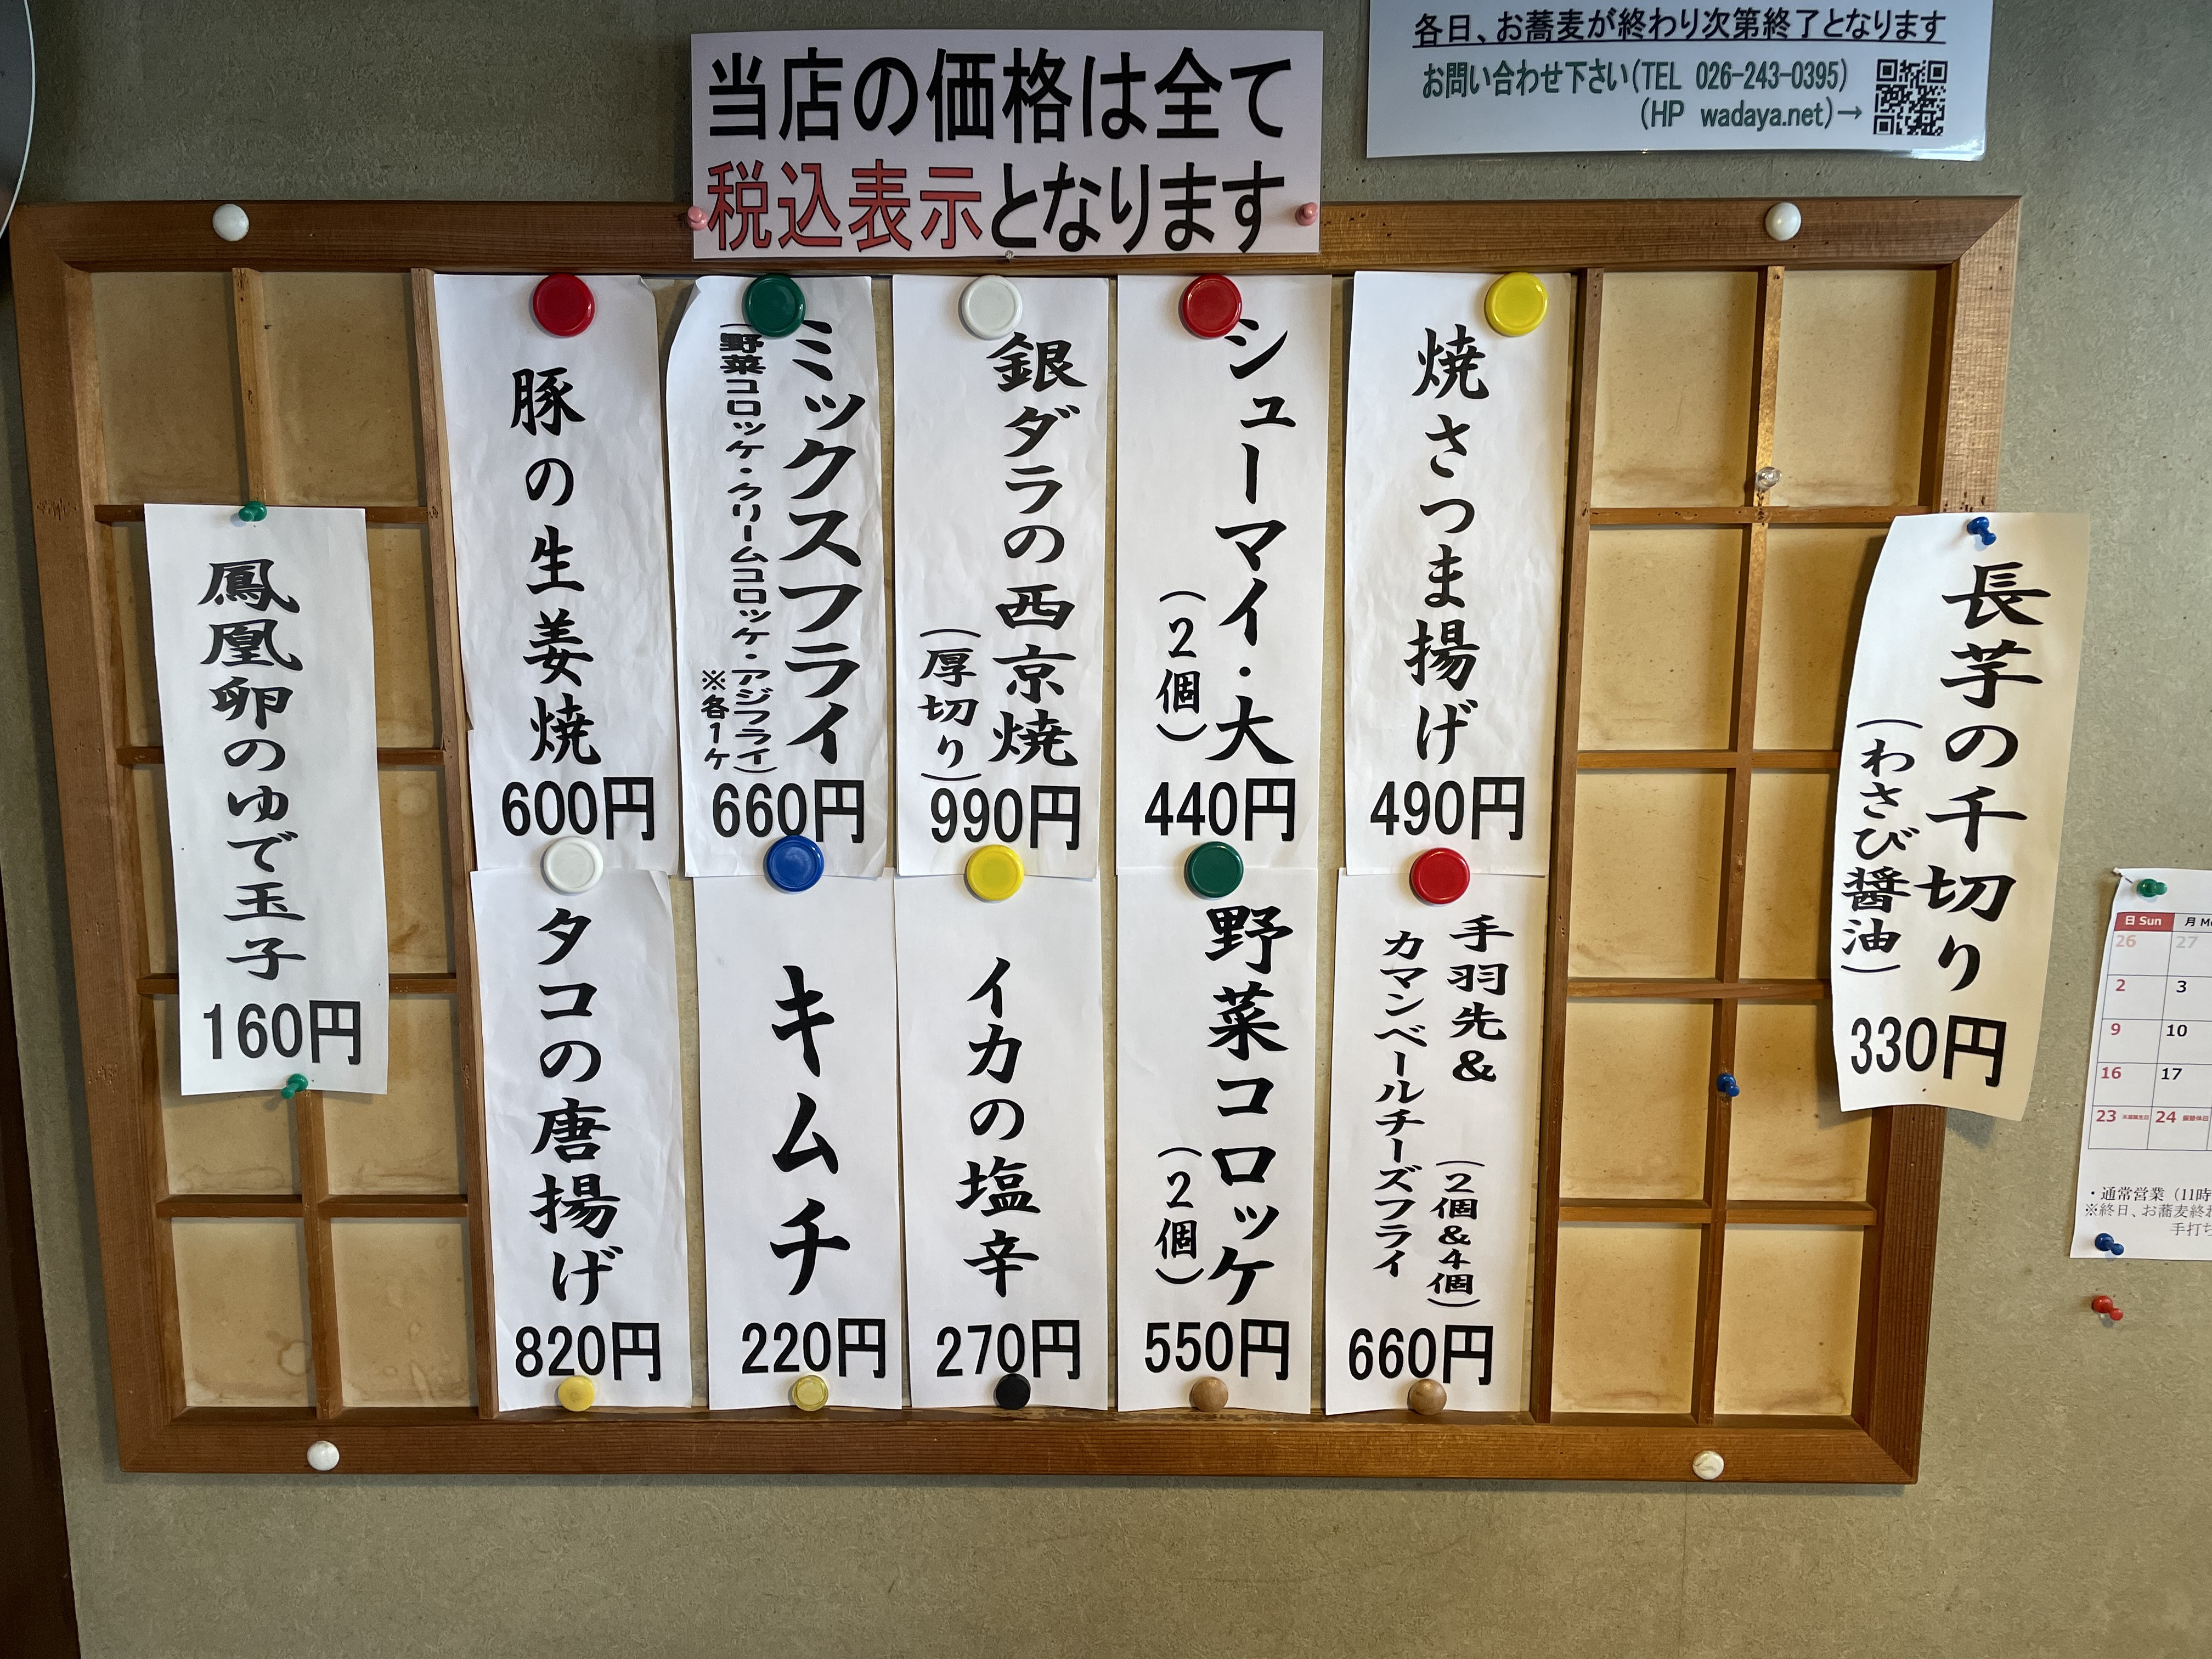 各日、お蕎麦が終わり次第終了となります
お問い合わせ下さい(TEL 026-243-0395)
(HP wadaya.net)→
当店の価格は全て
税込表示となります
長芋の千切り
(わさび醤油)
330円
焼さつま揚げ
490円
シューマイ・大
(2個)
440円
銀ダラの西京焼
(厚切り)
990円
ミックスフライ
(野菜コロッケ・クリームコロッケ・アジフライ)
※各1ヶ
660円
豚の生姜焼
600円
手羽先&
(2個&4個)
カマンベールチーズフライ
660円
野菜コロッケ
(2個)
550円
イカの塩辛
270円
キムチ
220円
タコの唐揚げ
820円
鳳凰卵のゆで玉子
160円
日 Sun 月
26 27
2 3
9 10
16 17
23 天皇誕生日 24 振替休日
・通常営業(11時
※終日、お蕎麦終
手打